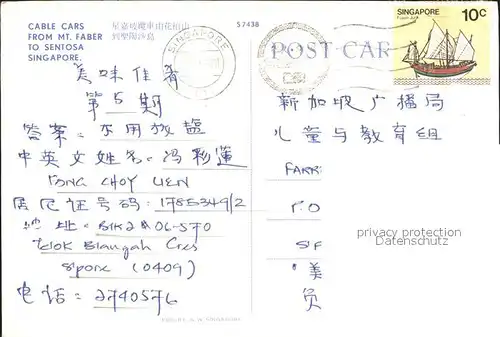 CABLE CARS
FROM MT. FABER
TO SENTOSA
SINGAPORE.
星嘉坡纜車由花柏山
到聖陶沙島
57438
SINGAPORE
POST CAR
SINGAPORE
10c
美味佳肴
第5期
答案: 不用放盐
中英文姓名: 冯彩蓮
FONG CHOY LIEN
居民证号码: 1785349/2
地址: BLK 2 # 06-570
Telok Blangah Cres
S'pore (0409)
电话: 2740576
新加坡广播局
儿童与教育组
FARR
P.O
"美
员
privacy protection
Datenschutz